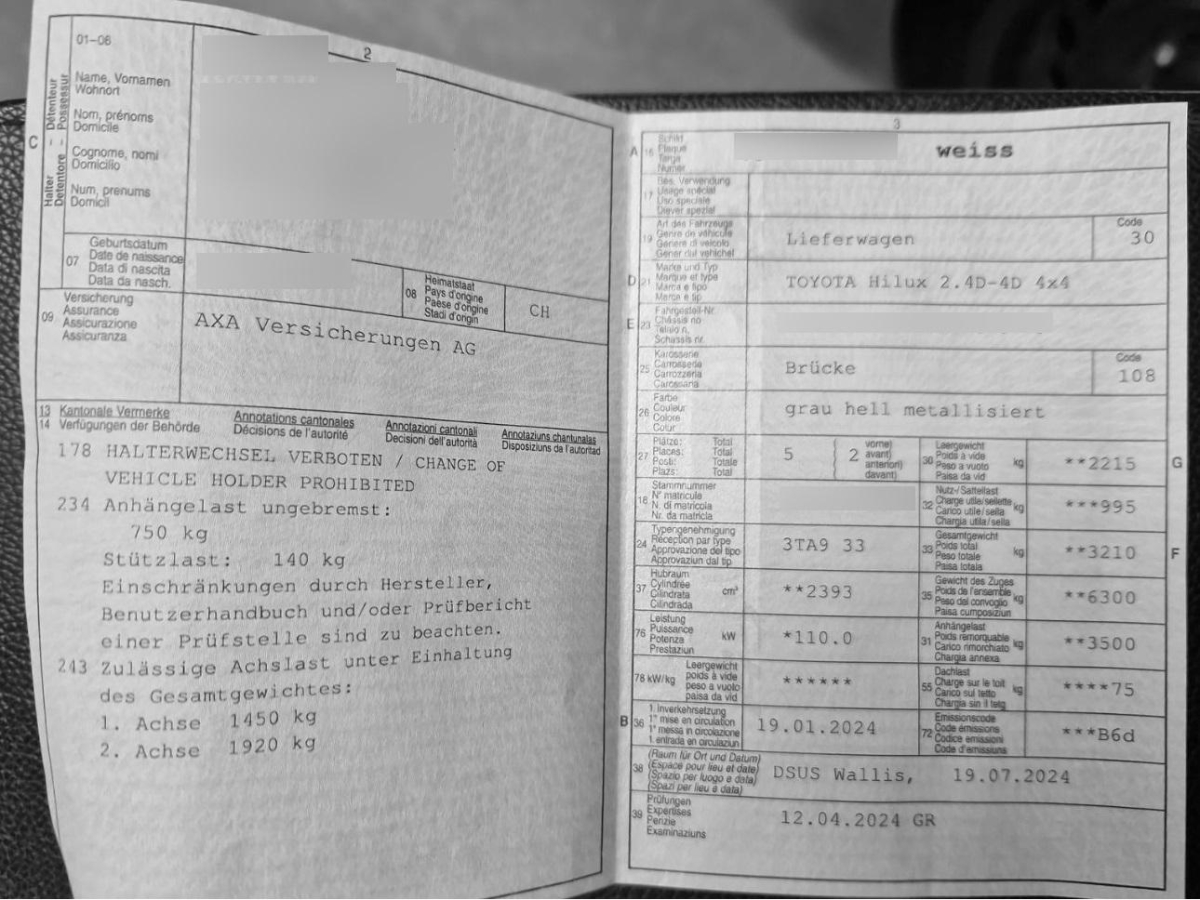 2
01-06
Halter – Détenteur
Detentore – Possessur
C
Name, Vornamen
Wohnort
Nom, prénoms
Domicile
Cognome, nomi
Domicilio
Num, prenums
Domicil
07
Geburtsdatum
Date de naissance
Data di nascita
Data da nasch.
08
Heimatstaat
Pays d'origine
Paese d'origine
Stadi d'origin
CH
09
Versicherung
Assurance
Assicurazione
Assicuranza
AXA Versicherungen AG
13 Kantonale Vermerke Annotations cantonales Annotazioni cantonali Annotaziuns chantunalas
14 Verfügungen der Behörde Décisions de l'autorité Decisioni dell'autorità Disposiziuns da l'autoritad
178 HALTERWECHSEL VERBOTEN / CHANGE OF
VEHICLE HOLDER PROHIBITED
234 Anhängelast ungebremst:
750 kg
Stützlast: 140 kg
Einschränkungen durch Hersteller,
Benutzerhandbuch und/oder Prüfbericht
einer Prüfstelle sind zu beachten.
243 Zulässige Achslast unter Einhaltung
des Gesamtgewichtes:
1. Achse 1450 kg
2. Achse 1920 kg
3
A 15
Schild
Plaque
Targa
Numer
weiss
17
Bes. Verwendung
Usage spécial
Uso speciale
Diever spezial
19
Art des Fahrzeugs
Genre de véhicule
Genere di veicolo
Gener dal vehichel
Lieferwagen
Code
30
D 21
Marke und Typ
Marque et type
Marca e tipo
Marca e tip
TOYOTA Hilux 2.4D-4D 4x4
E 23
Fahrgestell-Nr.
Châssis no
Telaio n.
Schassis nr.
25
Karosserie
Carrosserie
Carrozzeria
Carossaria
Brücke
Code
108
26
Farbe
Couleur
Colore
Colur
grau hell metallisiert
27
Plätze: Total
Places: Total
Posti: Totale
Plazs: Total
5
2
vorne)
avant)
anteriori)
davant)
30
Leergewicht
Poids à vide
Peso a vuoto
Paisa da vid
kg
**2215
G
18
Stammnummer
N° matricule
N. di matricola
Nr. da matricla
32
Nutz-/Sattellast
Charge utile/sellette
Carico utile/sella
Chargia utila/sella
kg
***995
24
Typengenehmigung
Réception par type
Approvazione del tipo
Approvaziun dal tip
3TA9 33
33
Gesamtgewicht
Poids total
Peso totale
Paisa totala
kg
**3210
F
37
Hubraum
Cylindrée
Cilindrata
Cilindrada
cm³
**2393
35
Gewicht des Zuges
Poids de l'ensemble
Peso del convoglio
Paisa cumposiziun
kg
**6300
76
Leistung
Puissance
Potenza
Prestaziun
kW
*110.0
31
Anhängelast
Poids remorquable
Carico rimorchiato
Chargia annexa
kg
**3500
78 kW/kg
Leergewicht
poids à vide
peso a vuoto
paisa da vid
******
55
Dachlast
Charge sur le toit
Carico sul tetto
Chargia sin il tetg
kg
****75
B 36
1. Inverkehrsetzung
1re mise en circulation
1a messa in circolazione
1. entrada en circulaziun
19.01.2024
72
Emissionscode
Code émissions
Codice emissioni
Code d'emissiuns
***B6d
38
(Raum für Ort und Datum)
(Espace pour lieu et date)
(Spazio per luogo e data)
(Spazi per lieu e data)
DSUS Wallis, 19.07.2024
39
Prüfungen
Expertises
Perizie
Examinaziuns
12.04.2024 GR